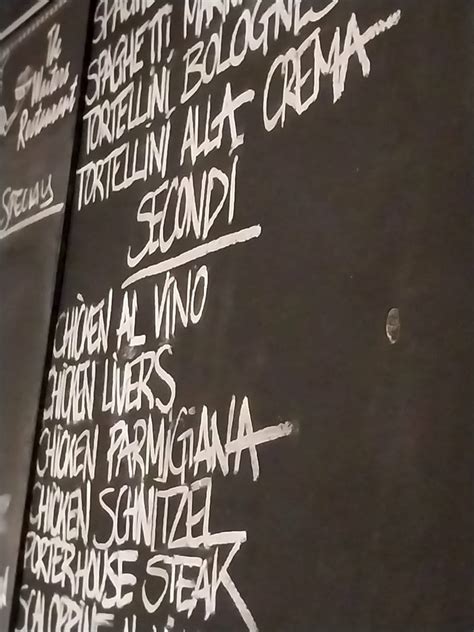 The
Waiters
Restaurant
SPECIALS
SPAGHETTI
TORTELLINI BOLOGNES
TORTELLINI ALLA CREMA
SECONDI
CHICKEN AL VINO
CHICKEN LIVERS
CHICKEN PARMIGIANA
CHICKEN SCHNITZEL
PORTERHOUSE STEAK
SCALOPPINE AL